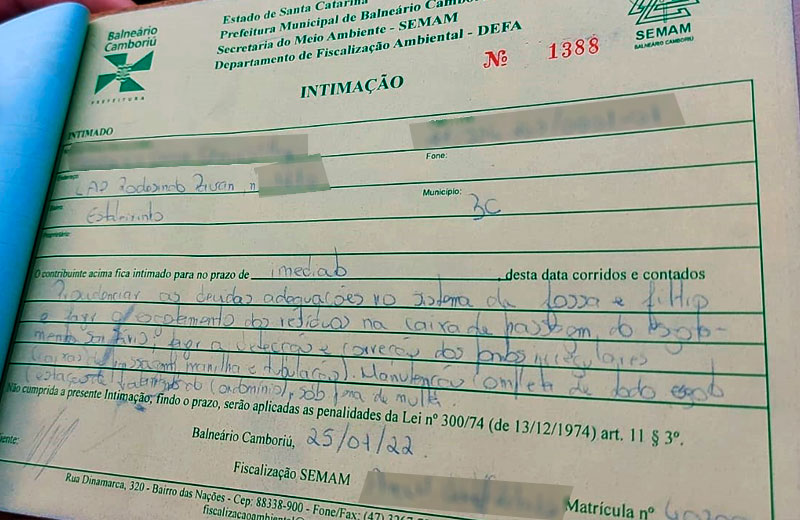 Balneário
Camboriú
PREFEITURA
Estado de Santa Catarina
Prefeitura Municipal de Balneário Camboriú
Secretaria do Meio Ambiente - SEMAM
Departamento de Fiscalização Ambiental - DEFA
SEMAM
BALNEÁRIO CAMBORIÚ
Nº 1388
INTIMAÇÃO
INTIMADO
Fone:
LAP Rodesindo Pavan, n
Município: BC
Estaleirinho
O contribuinte acima fica intimado para no prazo de imediato, desta data corridos e contados
Providenciar as devidas adequações no sistema de fossa e filtro
e fazer o esgotamento dos resíduos na caixa de passagem, do esgota-
mento sanitário; fazer a detecção e correção dos pontos irregulares
(caixas de passagem, manilha e tubulação). Manutenção completa de todo esgoto
condomínio), sob pena de multa.
Não cumprida a presente Intimação, findo o prazo, serão aplicadas as penalidades da Lei nº 300/74 (de 13/12/1974) art. 11 § 3º.
Balneário Camboriú, 25/01/22
Fiscalização SEMAM
Matrícula nº
Rua Dinamarca, 320 - Bairro das Nações - Cep: 88338-900 - Fone/Fax: (47)